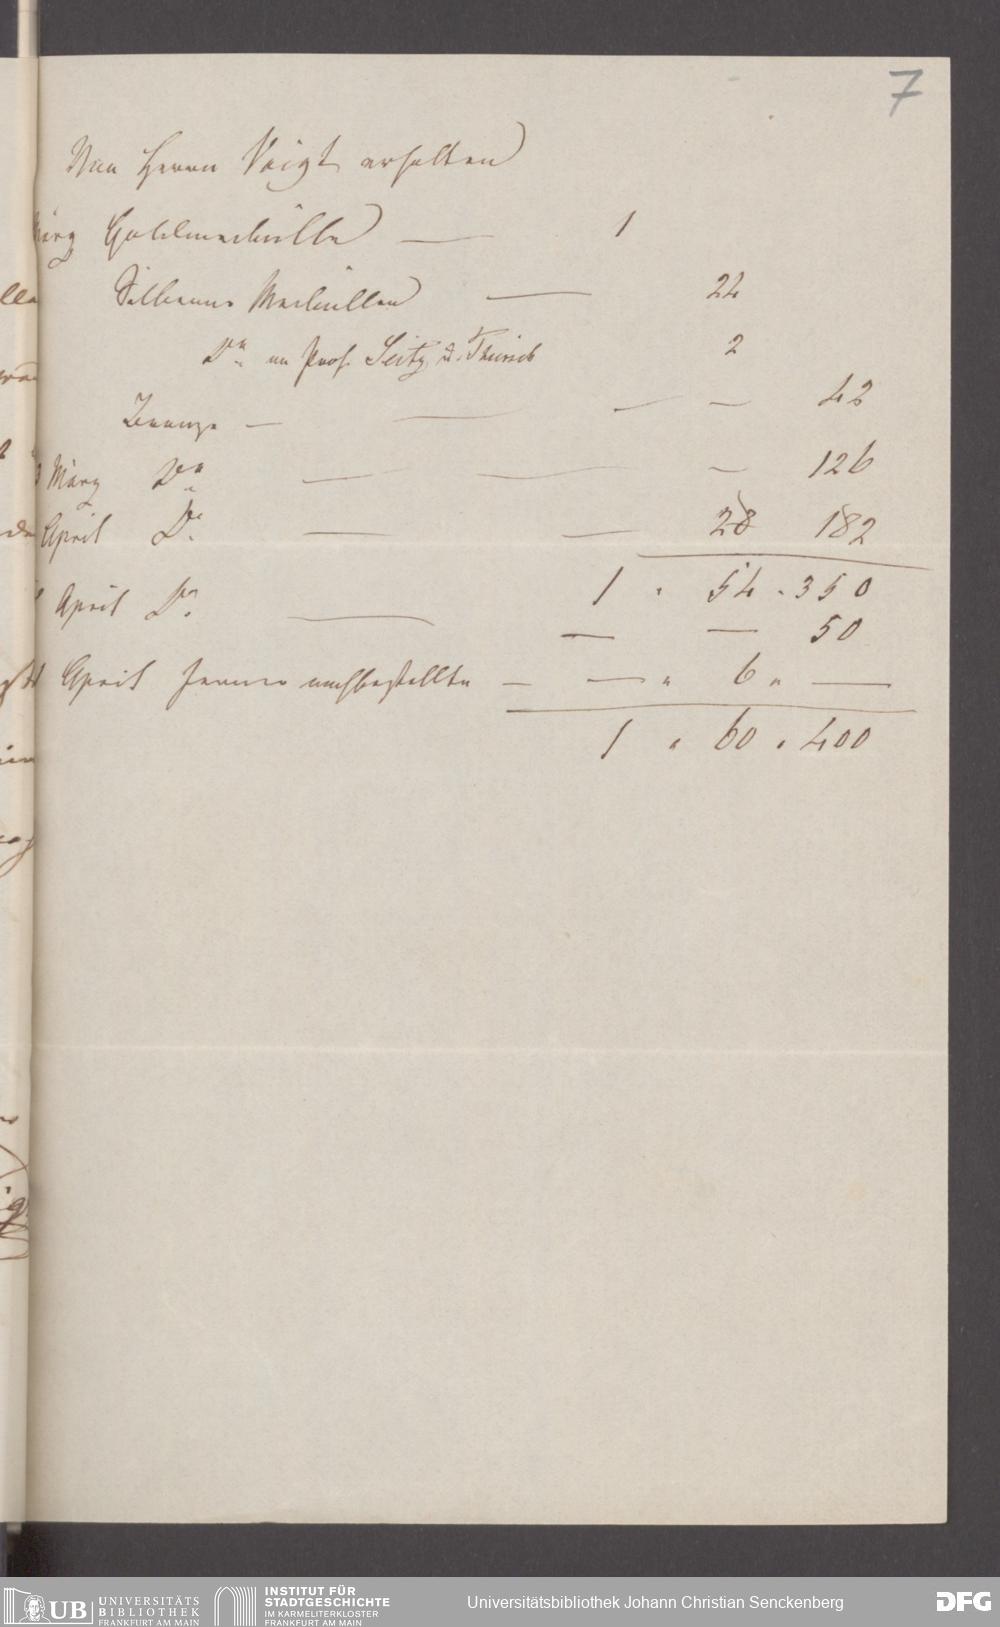 7
Von Herrn Voigt erhalten
März Goldmedaille — 1
Silberne Medaillen — 24
Do an Prof. Seitz u. Thiersch 2
Bronze — — — — 42
März Do — — — 126
April Do — — 28 182
1 " 54 " 350
April Do — — — 50
April ferner nachbestellte — — " 6 " —
1 " 60 " 400
UB UNIVERSITÄTS
BIBLIOTHEK
FRANKFURT AM MAIN
INSTITUT FÜR
STADTGESCHICHTE
IM KARMELITERKLOSTER
FRANKFURT AM MAIN
Universitätsbibliothek Johann Christian Senckenberg
DFG